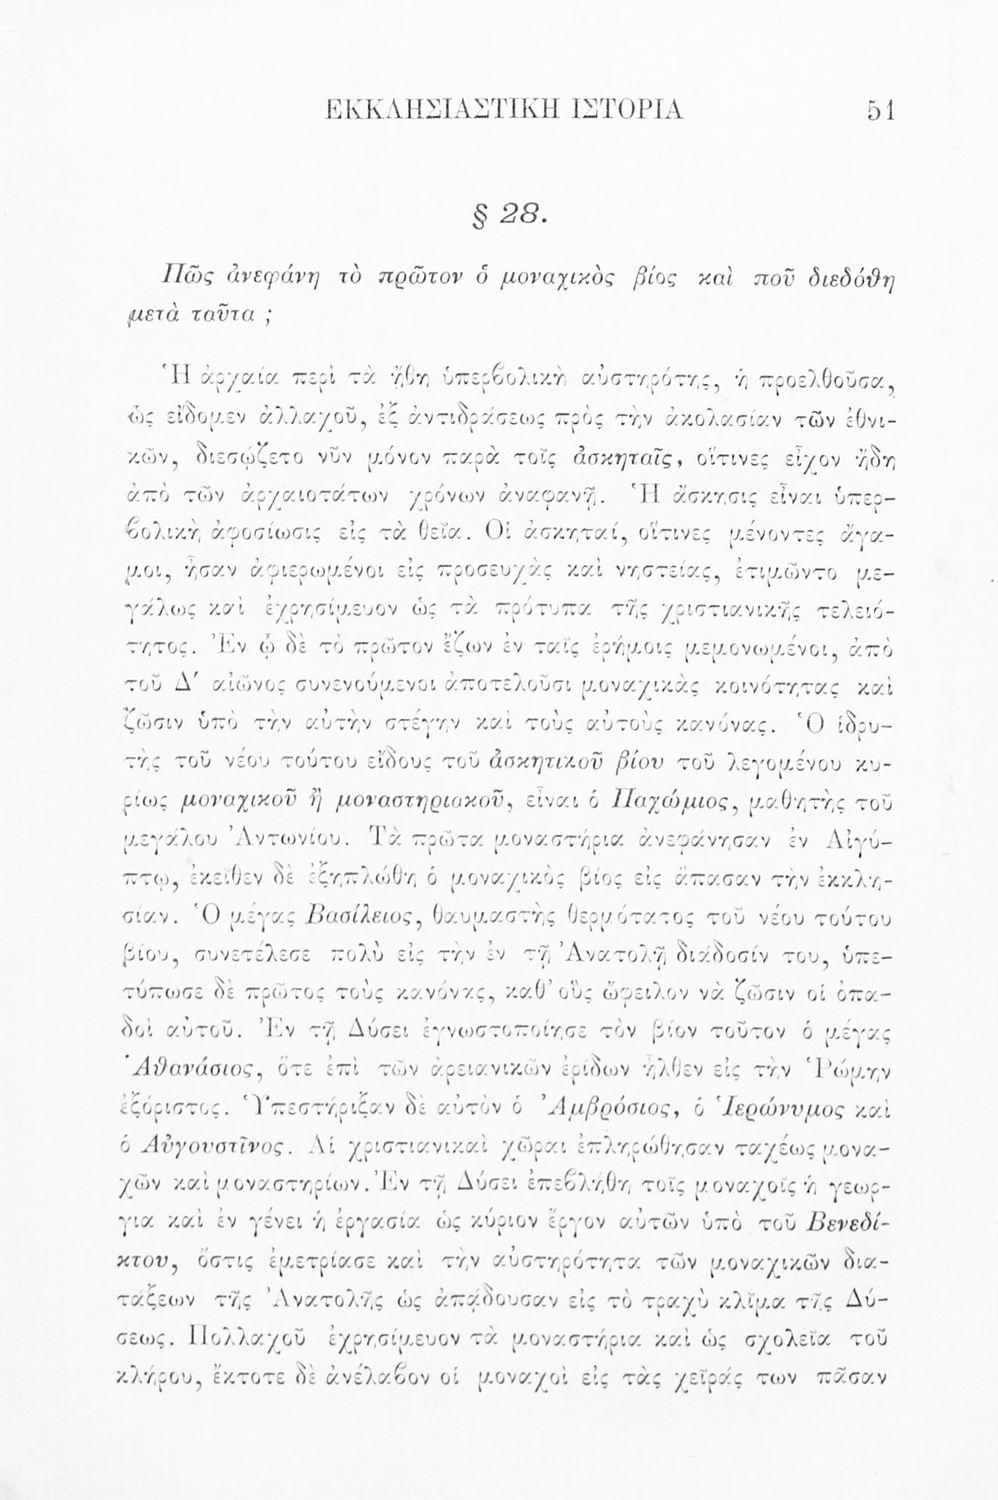 ΕΚΚΛΗΣΙΑΣΤΙΚΗ ΙΣΤΟΡΙΑ 51
§ 28.
Πῶς ἀνεφάνη τὸ πρῶτον ὁ μοναχικὸς βίος καὶ ποῦ διεδόθη
μετὰ ταῦτα ;
Ἡ ἀρχαία περὶ τὰ ἤθη ὑπερβολικὴ αὐστηρότης, ἡ προελθοῦσα,
ὡς εἴδομεν ἀλλαχοῦ, ἐξ ἀντιδράσεως πρὸς τὴν ἀκολασίαν τῶν ἐθνι-
κῶν, διεσῴζετο νῦν μόνον παρὰ τοῖς ἀσκηταῖς, οἵτινες εἶχον ἤδη
ἀπὸ τῶν ἀρχαιοτάτων χρόνων ἀναφανῆ. Ἡ ἄσκησις εἶναι ὑπερ-
βολικὴ ἀφοσίωσις εἰς τὰ θεῖα. Οἱ ἀσκηταί, οἵτινες μένοντες ἄγα-
μοι, ἦσαν ἀφιερωμένοι εἰς προσευχὰς καὶ νηστείας, ἐτιμῶντο με-
γάλως καὶ ἐχρησίμευον ὡς τὰ πρότυπα τῆς χριστιανικῆς τελειό-
τητος. Ἐν ᾧ δὲ τὸ πρῶτον ἔζων ἐν ταῖς ἐρήμοις μεμονωμένοι, ἀπὸ
τοῦ Δ' αἰῶνος συνενούμενοι ἀποτελοῦσι μοναχικὰς κοινότητας καὶ
ζῶσιν ὑπὸ τὴν αὐτὴν στέγην καὶ τοὺς αὐτοὺς κανόνας. Ὁ ἱδρυ-
τὴς τοῦ νέου τούτου εἴδους τοῦ ἀσκητικοῦ βίου τοῦ λεγομένου κυ-
ρίως μοναχικοῦ ἢ μοναστηριακοῦ, εἶναι ὁ Παχώμιος, μαθητὴς τοῦ
μεγάλου Ἀντωνίου. Τὰ πρῶτα μοναστήρια ἀνεφάνησαν ἐν Αἰγύ-
πτῳ, ἐκεῖθεν δὲ ἐξηπλώθη ὁ μοναχικὸς βίος εἰς ἅπασαν τὴν ἐκκλη-
σίαν. Ὁ μέγας Βασίλειος, θαυμαστὴς θερμότατος τοῦ νέου τούτου
βίου, συνετέλεσε πολὺ εἰς τὴν ἐν τῇ Ἀνατολῇ διάδοσίν του, ὑπε-
τύπωσε δὲ πρῶτος τοὺς κανόνας, καθ' οὓς ὤφειλον νὰ ζῶσιν οἱ ὀπα-
δοὶ αὐτοῦ. Ἐν τῇ Δύσει ἐγνωστοποίησε τὸν βίον τοῦτον ὁ μέγας
Ἀθανάσιος, ὅτε ἐπὶ τῶν ἀρειανικῶν ἐρίδων ἦλθεν εἰς τὴν Ῥώμην
ἐξόριστος. Ὑπεστήριξαν δὲ αὐτὸν ὁ Ἀμβρόσιος, ὁ Ἱερώνυμος καὶ
ὁ Αὐγουστῖνος. Αἱ χριστιανικαὶ χῶραι ἐπληρώθησαν ταχέως μονα-
χῶν καὶ μοναστηρίων. Ἐν τῇ Δύσει ἐπεβλήθη τοῖς μοναχοῖς ἡ γεωρ-
γία καὶ ἐν γένει ἡ ἐργασία ὡς κύριον ἔργον αὐτῶν ὑπὸ τοῦ Βενεδί-
κτου, ὅστις ἐμετρίασε καὶ τὴν αὐστηρότητα τῶν μοναχικῶν δια-
τάξεων τῆς Ἀνατολῆς ὡς ἀπᾴδουσαν εἰς τὸ τραχὺ κλῖμα τῆς Δύ-
σεως. Πολλαχοῦ ἐχρησίμευον τὰ μοναστήρια καὶ ὡς σχολεῖα τοῦ
κλήρου, ἔκτοτε δὲ ἀνέλαβον οἱ μοναχοὶ εἰς τὰς χεῖράς των πᾶσαν